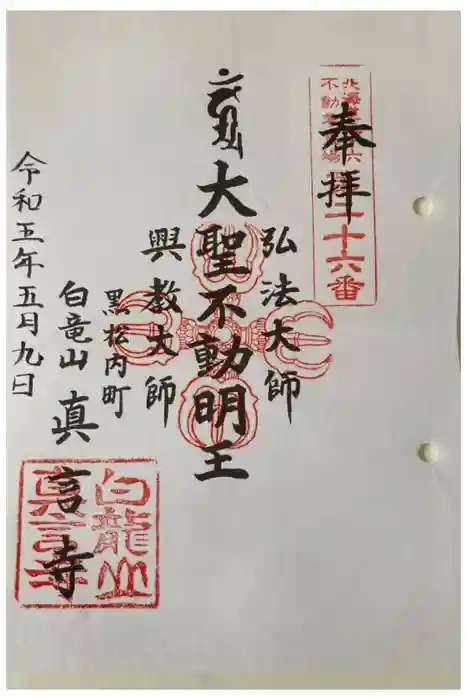 奉拝
北海道三十六
不動尊霊場
第二十六番
弘法大師
大聖不動明王
興教大師
黒松内町
白竜山 真言寺
令和五年五月九日
白龍山
真言寺